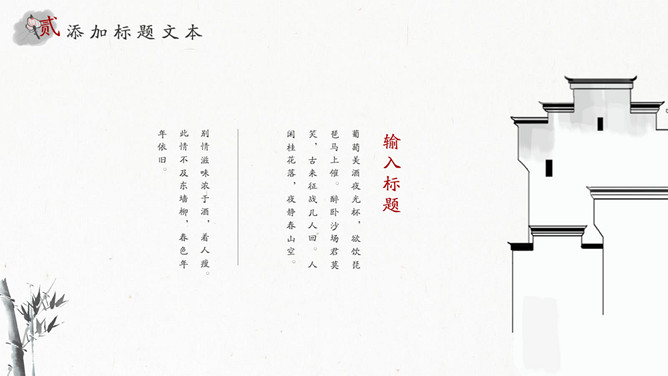 贰 添加标题文本
输入标题
葡萄美酒夜光杯，欲饮琵
琶马上催。醉卧沙场君莫
笑，古来征战几人回。人
闲桂花落，夜静春山空。
别情滋味浓于酒，着人瘦。
此情不及东墙柳，春色年
年依旧。